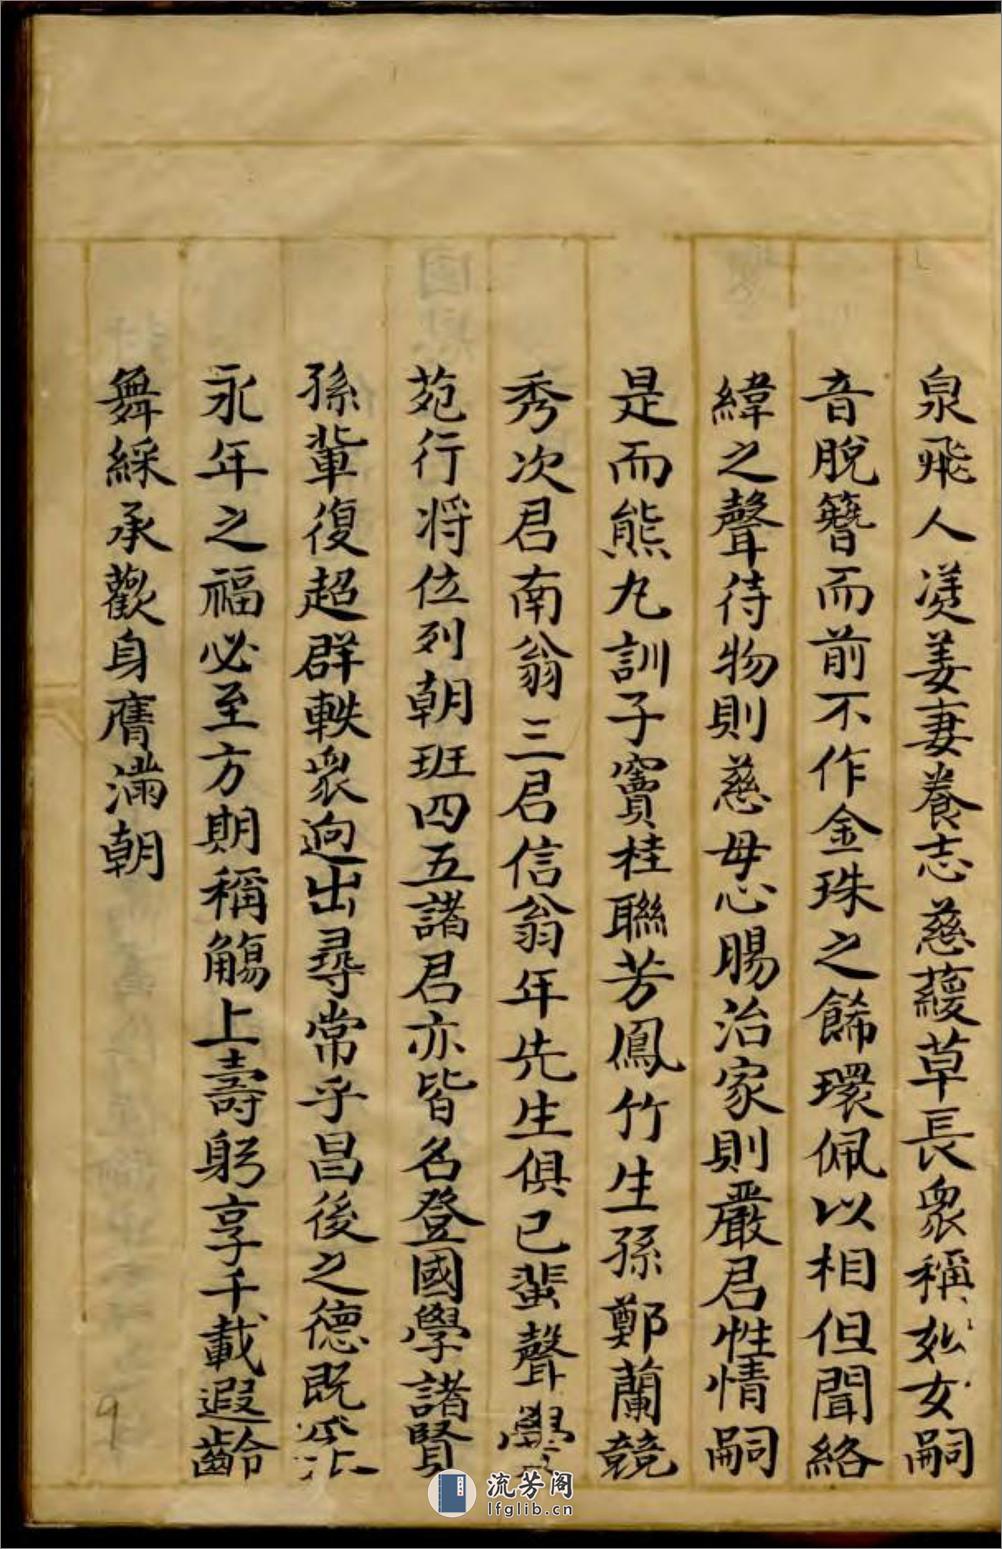 泉飛人湊姜妻養志慈蘐草長衆稱姒女嗣
音脫簪而前不作金珠之餙環佩以相但聞絡
緯之聲待物則慈母心腸治家則嚴君性情嗣
是而熊丸訓子竇桂聯芳鳳竹生孫鄭蘭競
秀次君南翁三君信翁年先生俱已蜚聲學
苑行将位列朝班四五諸君亦皆名登國學諸賢
孫軰復超群軼衆逈出尋常乎昌後之德既
永年之福必至方期稱觴上壽躬享千載遐齡
舞綵承歡身膺滿朝
9
流芳阁
lfglib.cn